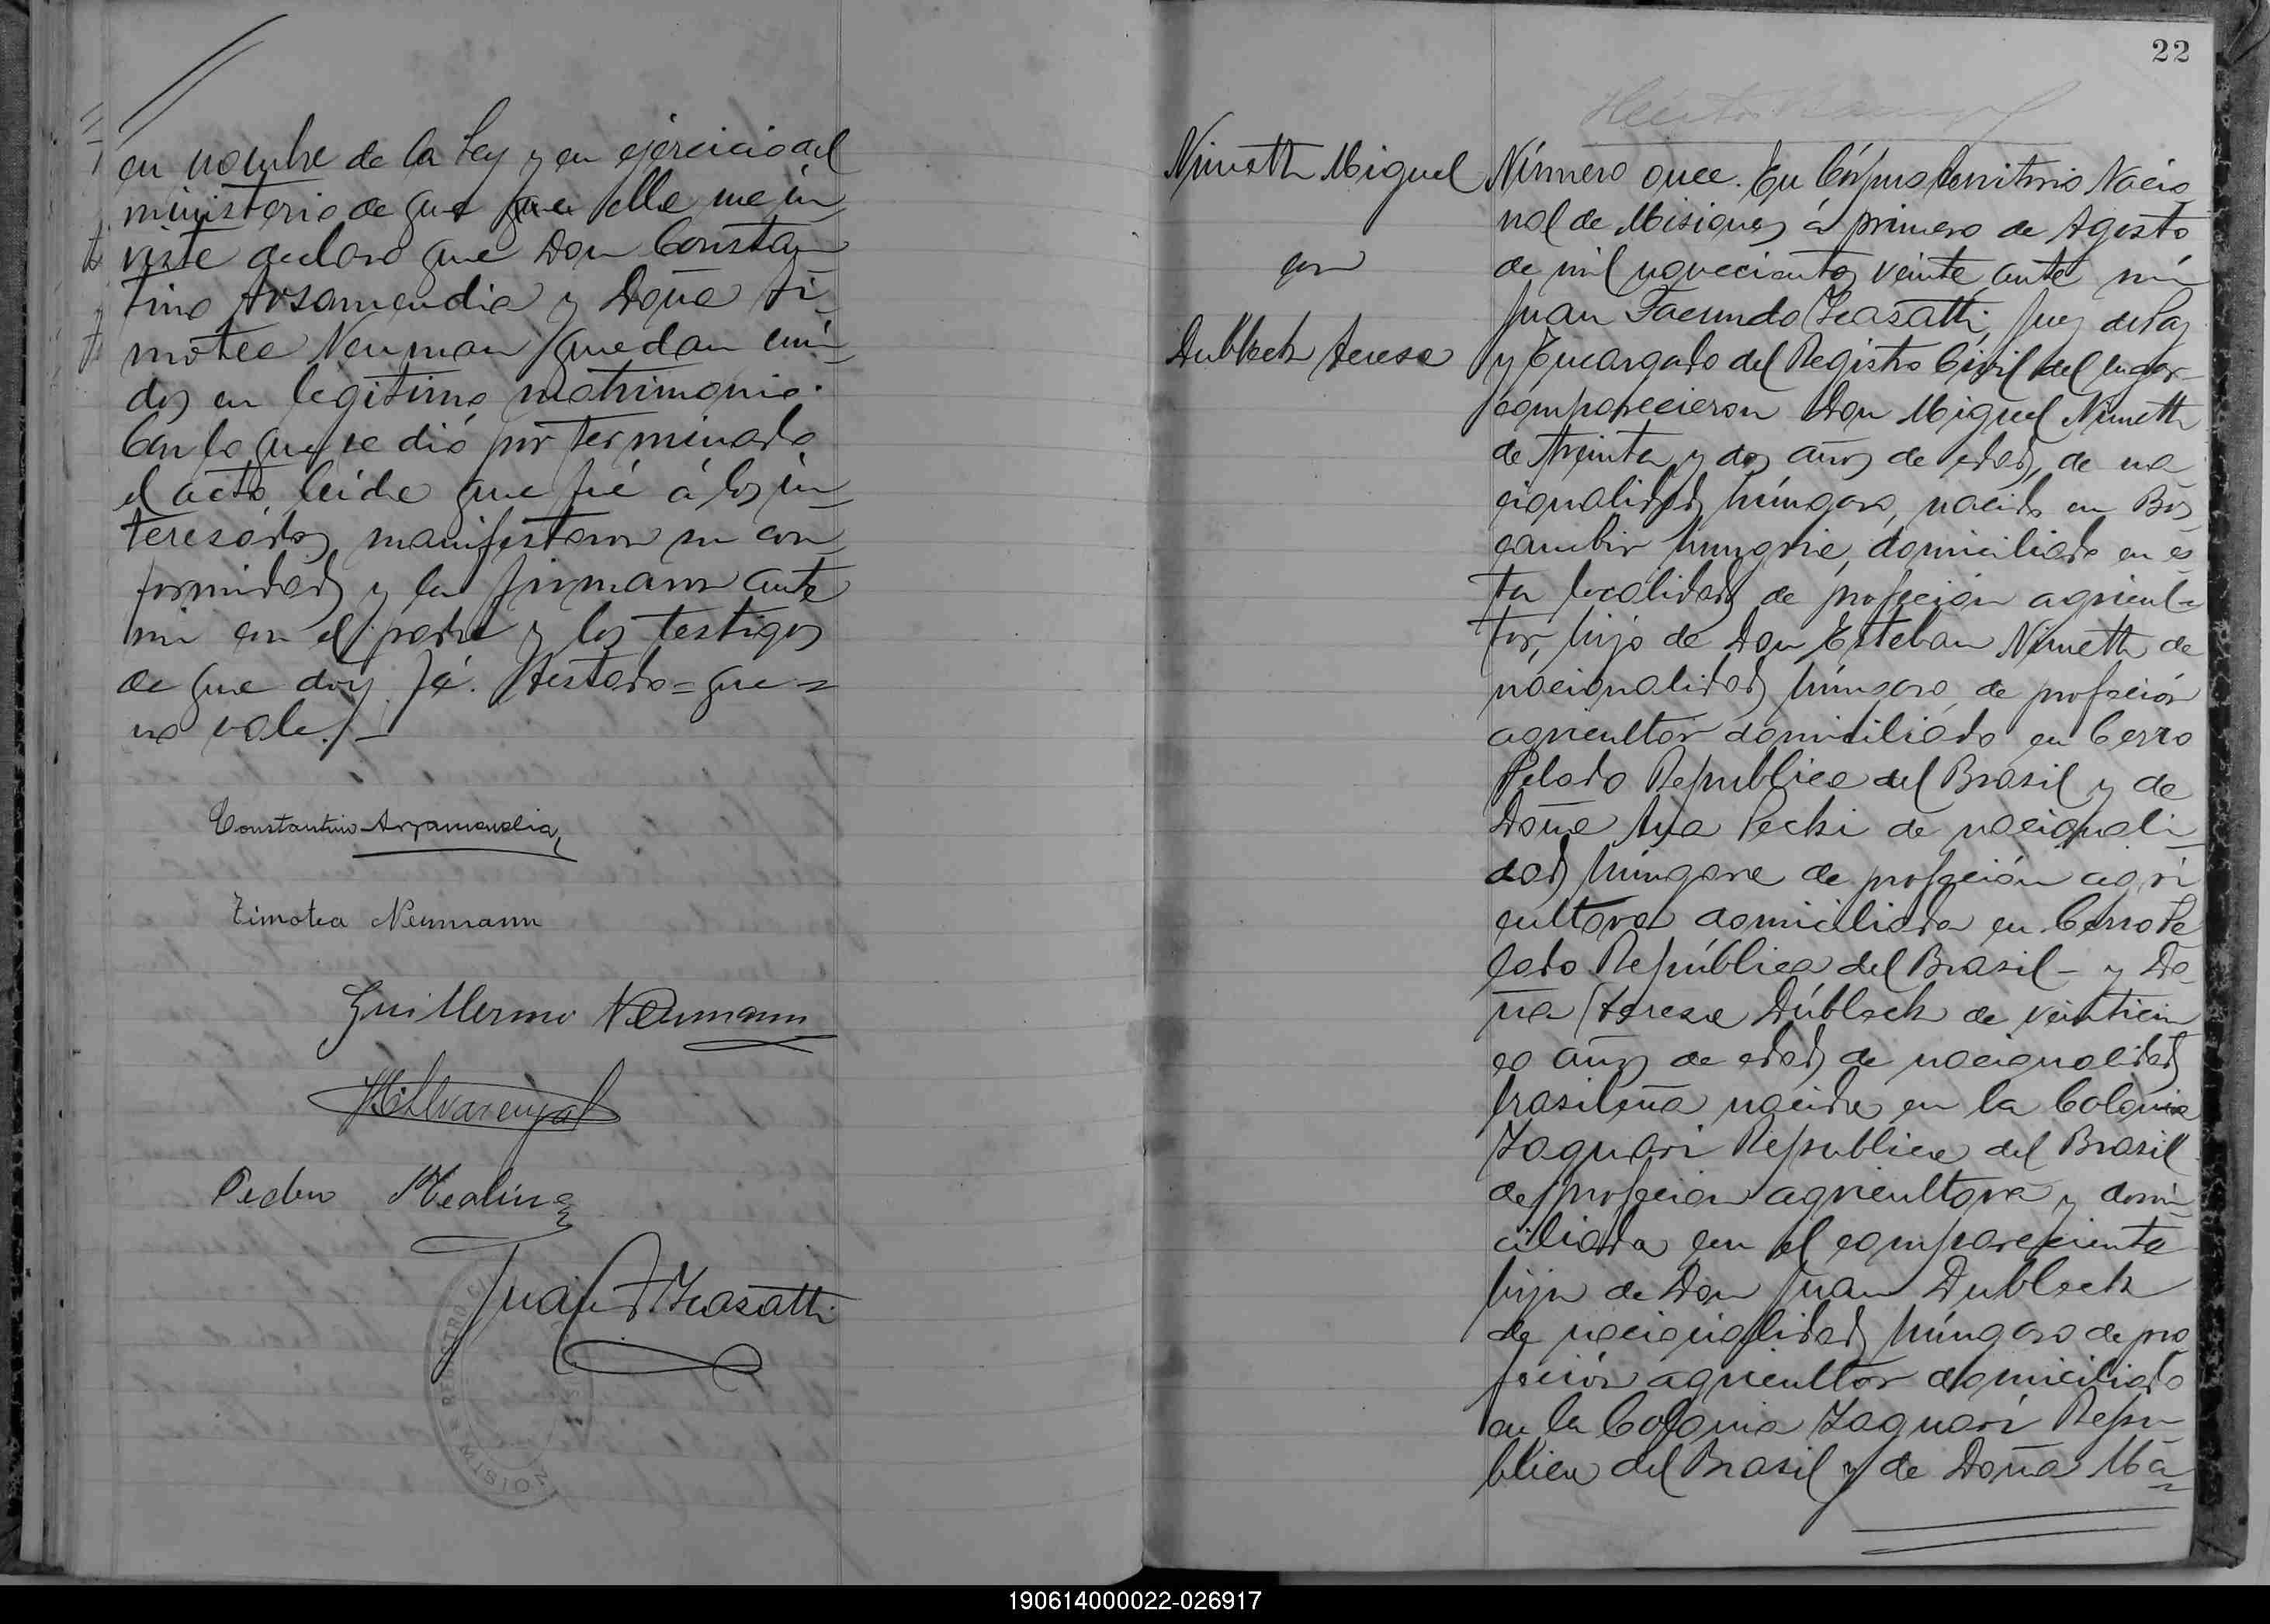 en nombre de la Ley y en ejercicio del
ministerio de que que ella me in
viste declaro que Don Constan
tino Arsamendia y Doña Ti
motea Neuman quedan uni
dos en legitimo matrimonio.
Con lo que se dió por terminado
el acto leida que fué á los in
teresados manifestaron su con
formidad y la firmaron ante
mi con el padre y los testigos
de que doy fé. Testado = que =
no vale./-
Constantino Arzamendia
Timotea Neumann
Guillermo Neumann
Pedro
Juan F.
22
Nimeth Miguel
con
Dubleck Teresa
Número once. En Córpus Territorio Nacio
nal de Misiones á primero de Agosto
de mil novecientos veinte ante mí
Juan Facundo Juez de Paz
y Encargado del Registro Civil del lugar
comparecieron Don Miguel Nimeth
de treinta y dos años de edad, de na
cionalidad húngara, nacido en
Hungria, domiciliado en es
ta localidad de profeción agricul-
tor, hijo de Don Esteban Nimeth de
nacionalidad húngara, de profeción
agricultor domiciliado en Cerro
Pelado Republica del Brasil y de
Doña Ana Pecki de nacionali
dad húngara de profeción agri
cultora domiciliada en Cerro Pe
lado República del Brasil - y Do
ña Teresa Dúbleck de veinticin
co años de edad de nacionalidad
brasileña nacida en la Colonia
Jaguari Republica del Brasil
de profecion agricultora y domi
ciliada con el compareciente
hija de Don Juan Dubleck
de nacionalidad húngara de pro
feción agricultor domiciliado
en la Colonia Jaguari Repu
blica del Brasil y de Doña Ma
190614000022-026917